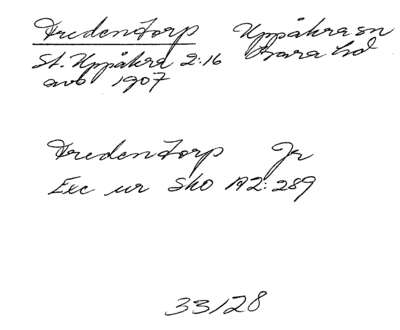 Fredentorp Uppåkra sn
St. Uppåkra 2:16 Bara hd
avs 1907
Fredentorp Jr
Exc ur Sko A2:289
33/28